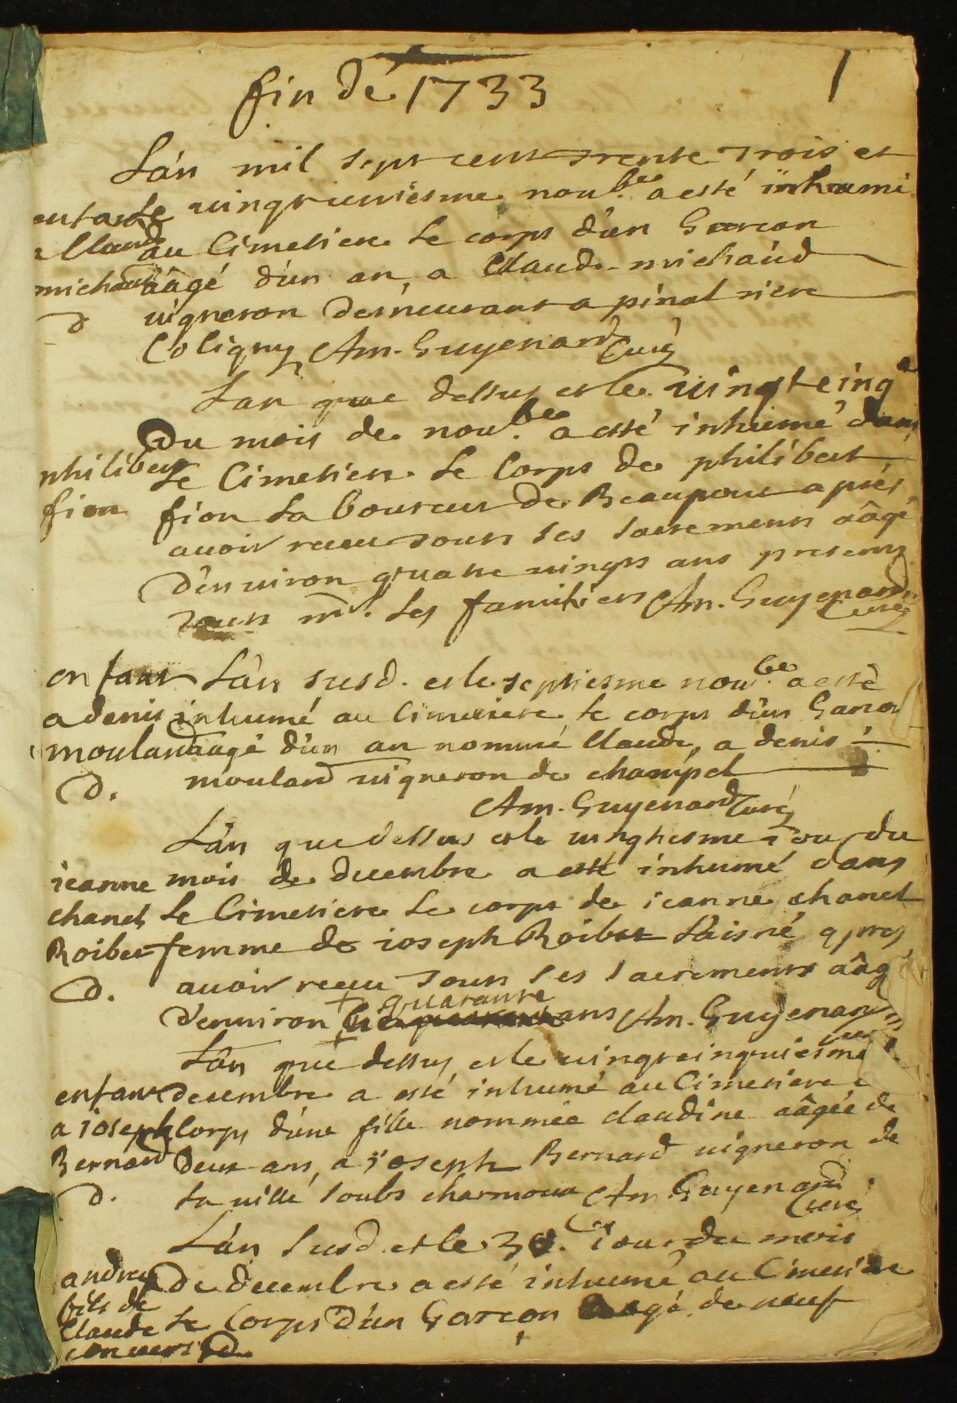 fin dé 1733
1
L'an mil sept cent trente trois et
enfant Le vingtiesme nou.bre a esté inhumé
a Claude au Cimetiere Le corps d'un Garcon
michaud aâgé d'un an, a Claude michaud
d vigneron demeurant a pinal riere
Coligny Am. Guyenard Curé
L'an que dessus et le vingt cinq.e
Du mois de nou.bre a esté inhumé dans
philibert Le Cimetiere Le Corps de philibert
fion fion Laboureur de Beaupont aprés
auoir receu tous les sacrements aâgé
d'enuiron quatre vingts ans presents
tous mr. Les familiers Am. Guyenard Curé
enfant L'an susd. et le septiesme nou.bre a esté
a denis inhumé au Cimetiere Le corps d'un Garcon
mouland aagé d'un an nommé Claude, a denis
d. mouland vigneron de champel
Am. Guyenard Curé
L'an que dessus et le vingtiesme iour du
ieanne mois de decembre a esté inhumé dans
chanel Le Cimetiere Le corps de ieanne chanel
Roibet femme de ioseph Roibet L'aisné apres
d. auoir receu tous les sacrements aâgé
d'enuiron quarante ans Am. Guyenard Curé
L'an que dessus, et le vingtcinquiesme
enfant decembre a esté inhumé au Cimetiere Le
a ioseph Corps d'une fille nommée claudine aâgée de
Bernard Deux ans, a ioseph Bernard vigneron de
d. La ville soubs charmoux Am. Guyenard Curé
L'an susd. et le 30.e iour du mois
andrey De decembre a esté inhumé au Cimetiere
fils de Claude Le Corps d'un Garcon aagé de neuf